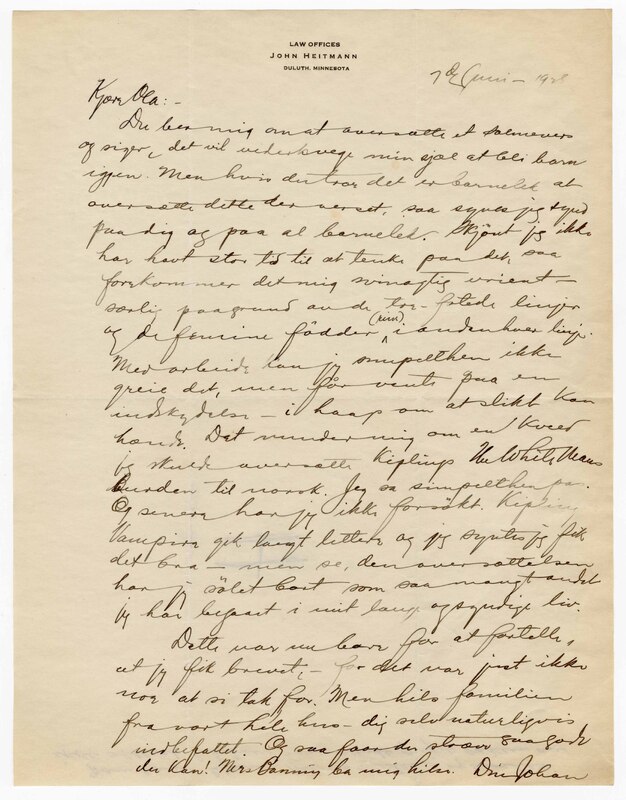 LAW OFFICES
JOHN HEITMANN
DULUTH, MINNESOTA
7de Juni - 1928
Kjære Ola: -
Du ber mig om at oversætte et salmevers
og siger, det vil vederkvege min sjæl at bli barn
igjen. Men hvis du tror det er barnelek at
oversætte dette der verset, saa synes jeg synd
paa dig og paa al barnelek. Skjønt jeg ikke
har havt stor tid til at tenke paa det, saa
forekommer det mig svinagtig vrient -
særlig paagrund av de tre-fotede linjer
og de feminine fødder (rim) i andenhver linje.
Med arbeide kan jeg simpelthen ikke
greie det, men får vente paa en
indskydelse - i haap om at slikt kan
hænde. Det minder mig om en kveld
jeg skulde oversætte Kiplings The White Mans
Burden til norsk. Jeg sa simpelthen pas.
Og senere har jeg ikke forsøkt. Kiplings
Vampire gik langt lettere og jeg syntes jeg fik
det bra - men se, den oversættelsen
har jeg sølet bort som saa mangt andet
jeg har begaaet i mit lange og syndige liv.
Dette var nu bare for at fortelle,
at jeg fik brevet, - for det var just ikke
nog at si tak for. Men hils familien
fra vort hele hus - dig selv naturligvis
indbefattet. Og saa faar du stræve saa godt
du kan! Mrs ba mig hilse. Din Johan